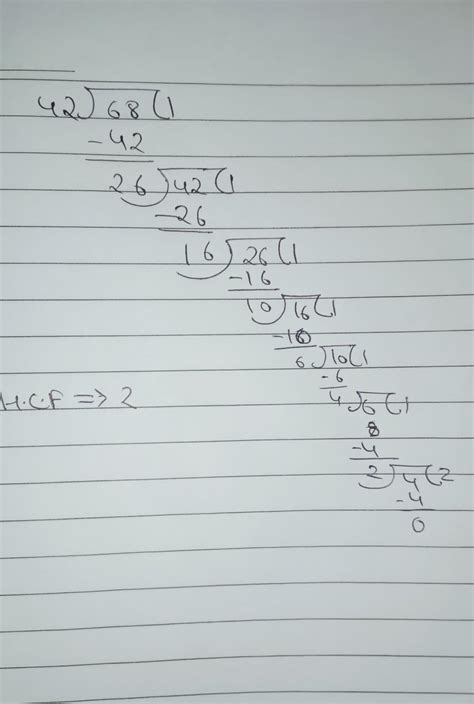 42)68(1
-42
26)42(1
-26
16)26(1
-16
10)16(1
-10
6)10(1
-6
4)6(1
-4
2)4(2
-4
0
H.C.F => 2